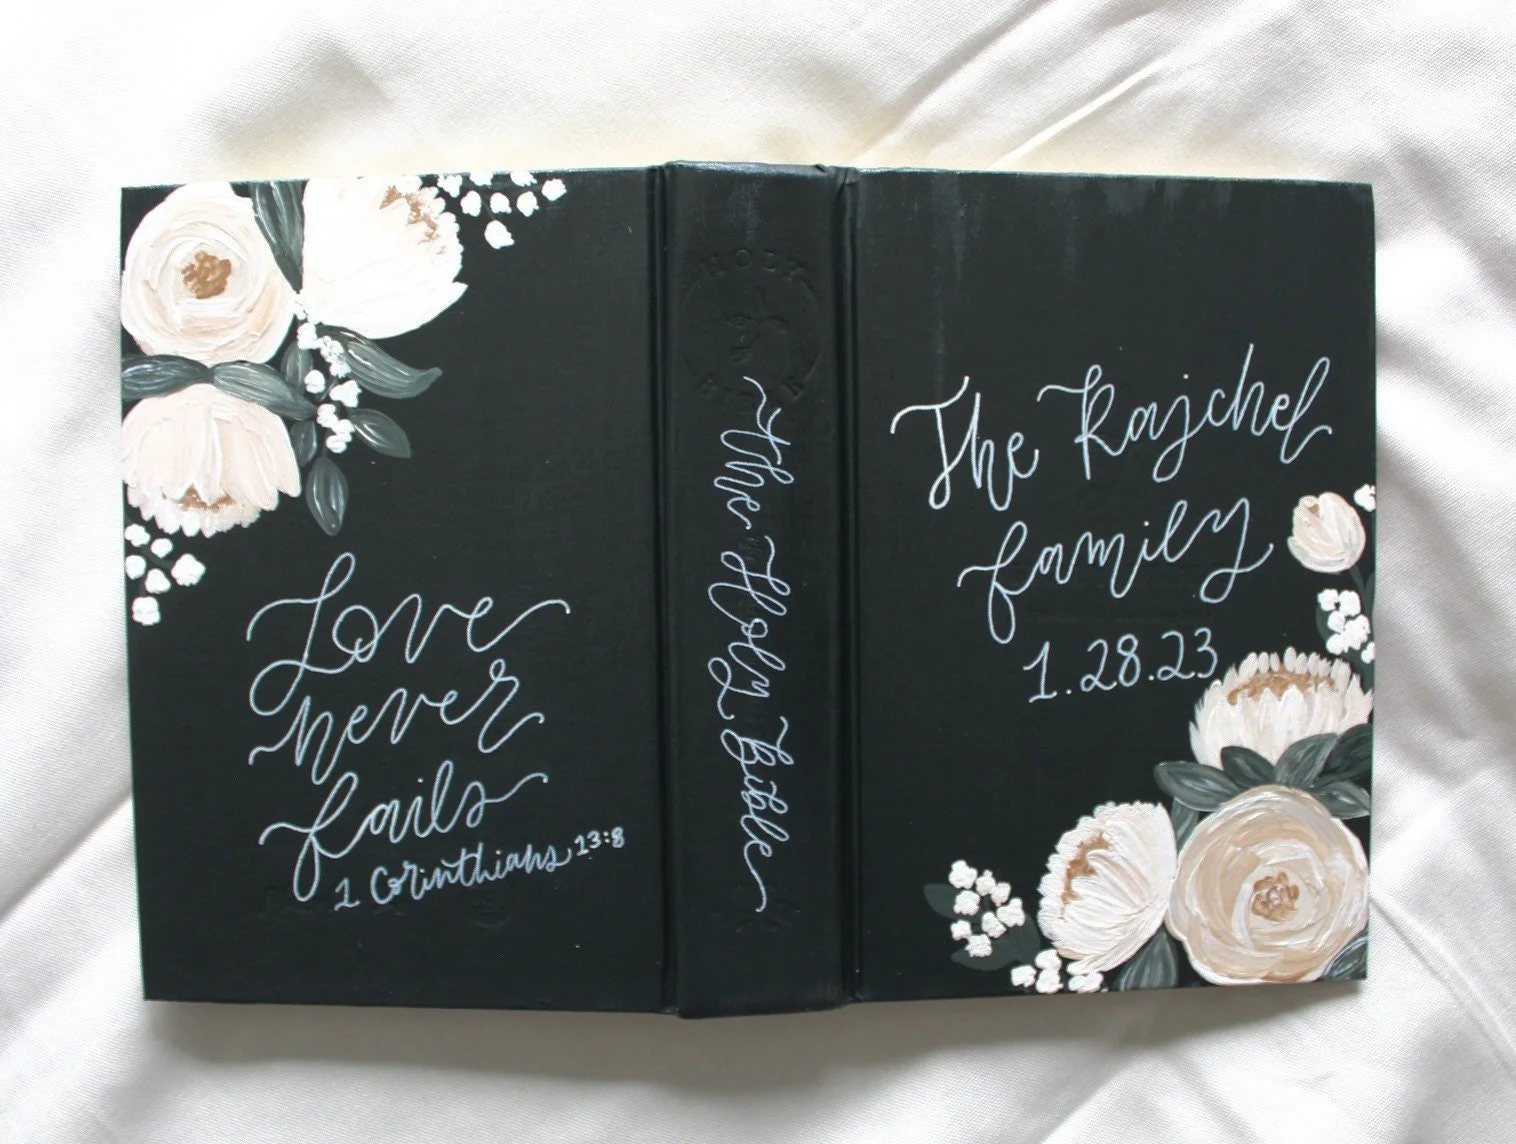 Love
never
fails
1 Corinthians 13:8
HOLY
BIBLE
The Holy Bible
The Rajchel
family
1.28.23